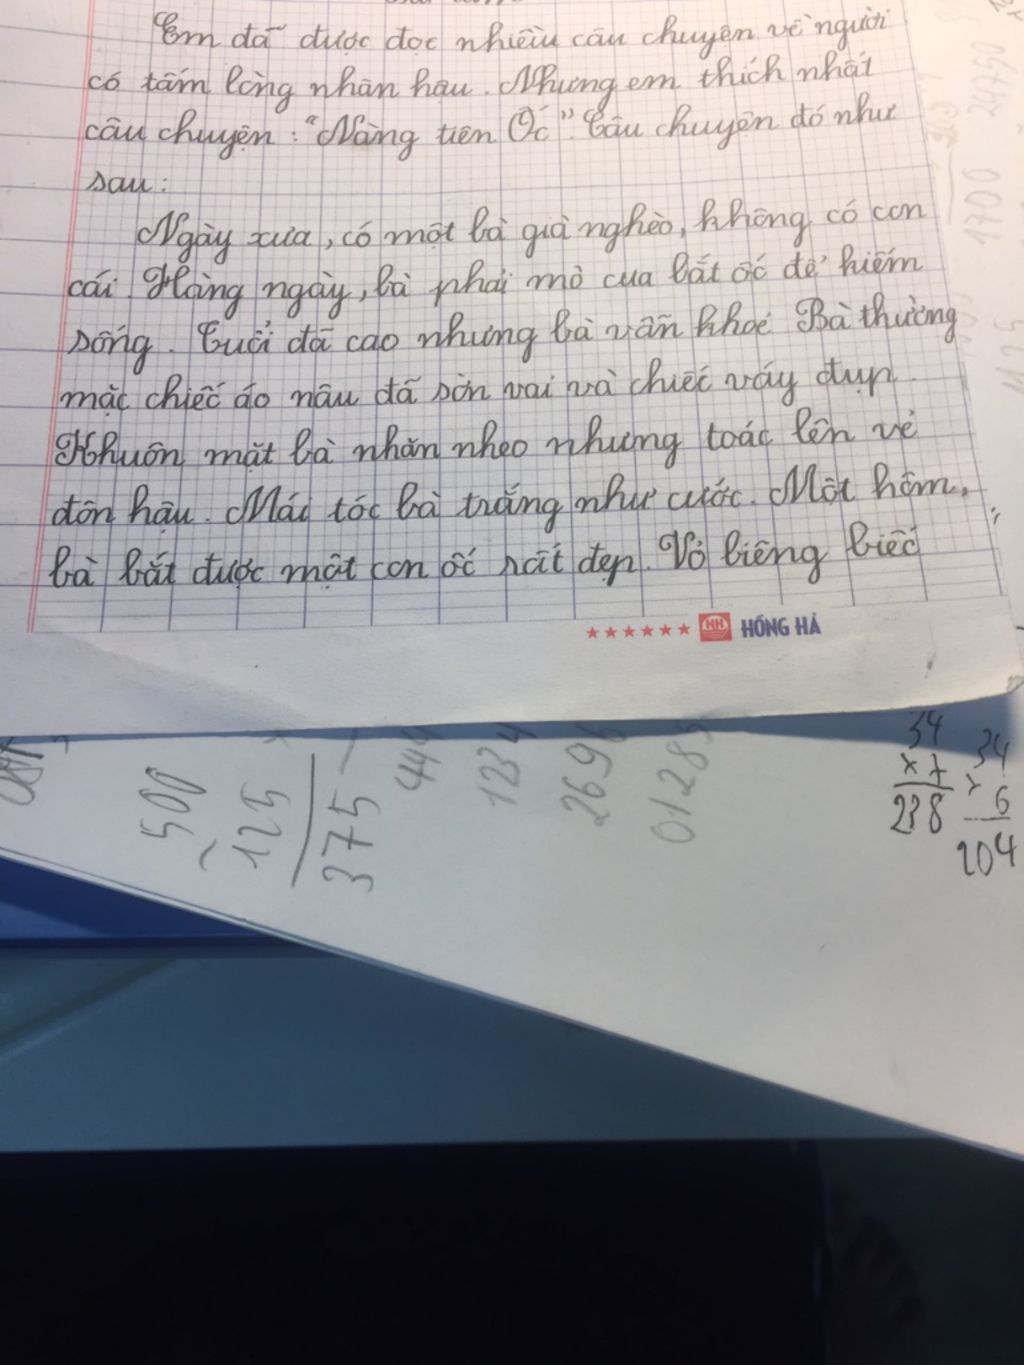 Em đã được đọc nhiều câu chuyện về người
có tấm lòng nhân hậu. Nhưng em thích nhất
câu chuyện: "Nàng tiên Ốc". Câu chuyện đó như
sau:
Ngày xưa, có một bà già nghèo, không có con
cái. Hàng ngày, bà phải mò cua bắt ốc để kiếm
sống. Tuổi đã cao nhưng bà vẫn khoẻ. Bà thường
mặc chiếc áo nâu đã sờn vai và chiếc váy đụp.
Khuôn mặt bà nhăn nheo nhưng toác lên vẻ
đôn hậu. Mái tóc bà trắng như cước. Một hôm,
bà bắt được một con ốc rất đẹp. Vỏ biêng biếc
HỒNG HÀ
500
125
375
444
1234
2696
34
x 7
238
34
x 6
204
1700